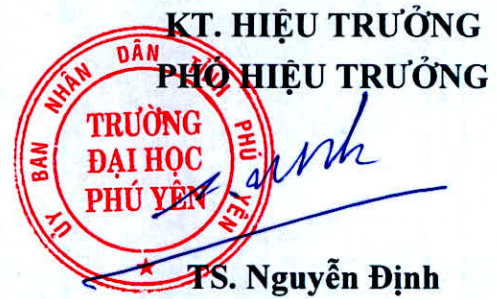 KT. HIỆU TRƯỞNG
PHÓ HIỆU TRƯỞNG
ỦY BAN NHÂN DÂN TỈNH PHÚ YÊN
TRƯỜNG
ĐẠI HỌC
PHÚ YÊN
TS. Nguyễn Định